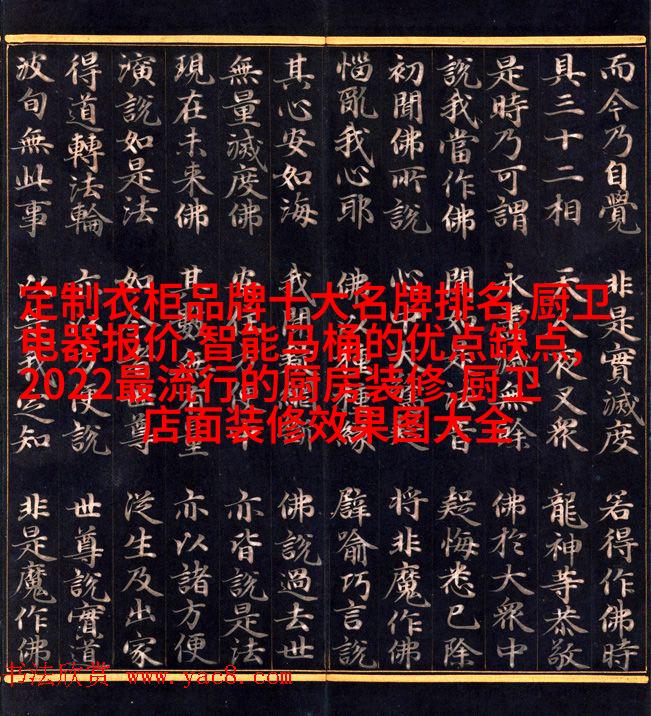 而今乃自覺 非是實滅度 若得作佛時
具三十二相 天 夜叉眾 龍神等恭敬
是時乃可謂 永 滅無餘 佛於大眾中
說我當作佛 聞 法音 疑悔悉已除
初聞佛所說 心中大 將非魔作佛
惱亂我心耶 佛以種種緣 譬喻巧言說
其心安如海 我聞 佛說過去世
無量滅度佛 安 方 亦皆說是法
現在未來佛 其數 量 亦以諸方便
演說如是法 如 尊 從生及出家
得道轉法輪 亦 方便說 世尊說實道
波旬無此事 以是我 知 非是魔作佛
定制衣柜品牌十大名牌排名,厨卫
电器报价,智能马桶的优点缺点,
2022最流行的厨房装修,厨卫
店面装修效果图大全
书法欣赏 www.yac8.com